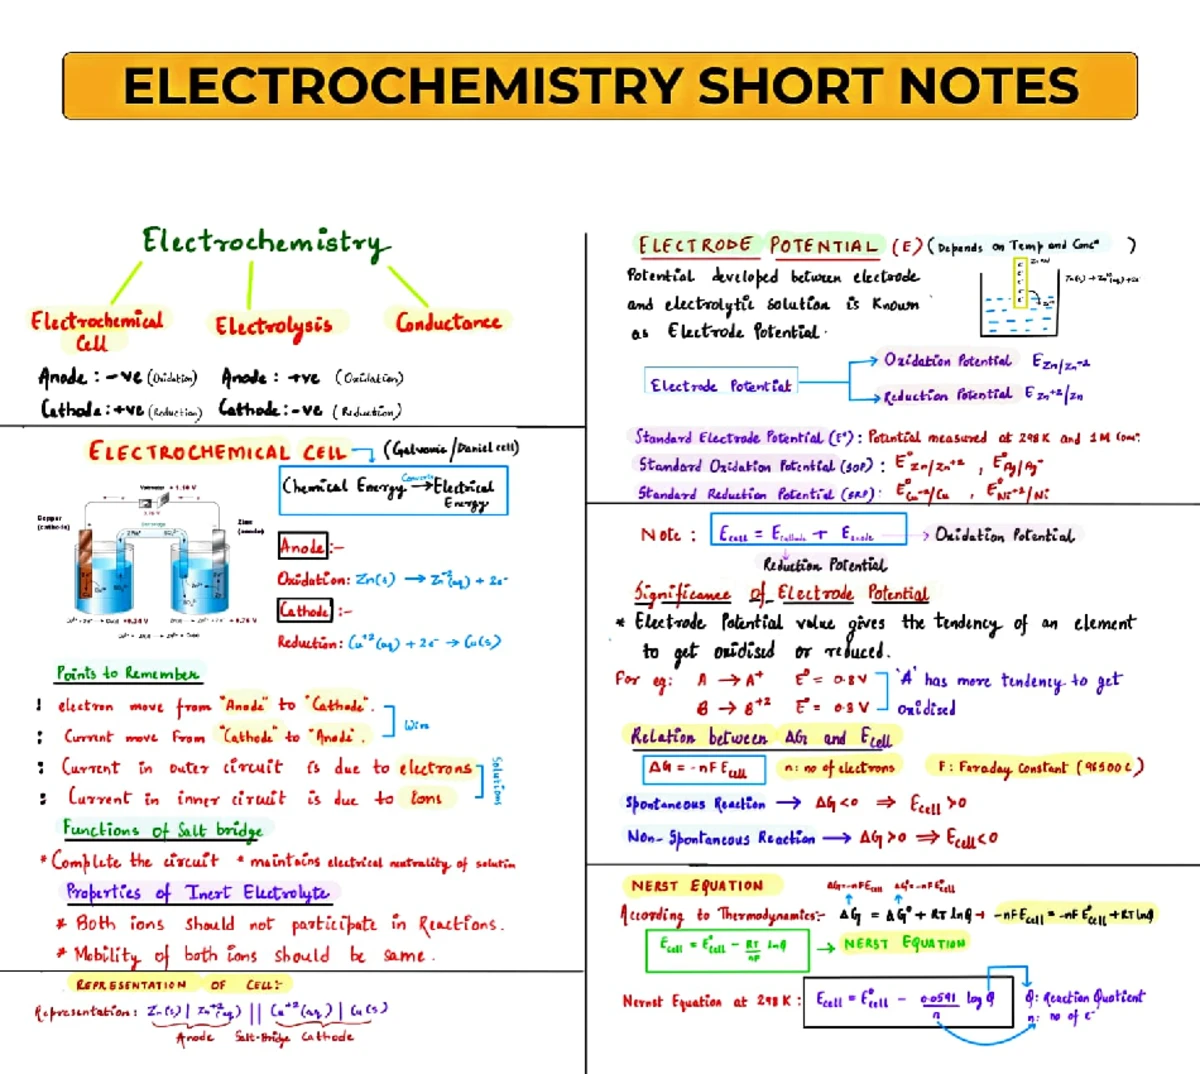 ELECTROCHEMISTRY SHORT NOTES
Electrochemistry
Electrochemical Cell
Electrolysis
Conductance
Anode : -ve (Oxidation)
Cathode : +ve (Reduction)
Anode : +ve (Oxidation)
Cathode : -ve (Reduction)
ELECTROCHEMICAL CELL (Galvanic/Daniel cell)
Chemical Energy Converts → Electrical Energy
Copper (cathode)
Zinc (anode)
Anode :-
Oxidation: Zn(s) → Zn⁺²(aq) + 2e⁻
Cathode :-
Reduction: Cu⁺²(aq) + 2e⁻ → Cu(s)
Points to Remember
electron move from "Anode" to "Cathode".
Current move From "Cathode" to "Anode".
Wire
Current in outer circuit is due to electrons
Current in inner circuit is due to ions
Solutions
Functions of Salt bridge
* Complete the circuit * maintains electrical neutrality of solutin
Properties of Inert Electrolyte
* Both ions should not participate in Reactions.
* Mobility of both ions should be same.
REPRESENTATION OF CELL:-
Representation : Zn(s) | Zn⁺²(aq) || Cu⁺²(aq) | Cu(s)
Anode Salt-Bridge Cathode
ELECTRODE POTENTIAL (E) (Depends on Temp and Concⁿ)
Potential developed between electrode
and electrolytic solution is Known
as Electrode Potential.
Electrode Potential
Oxidation Potential E Zn/Zn⁺²
Reduction Potential E Zn⁺²/Zn
Standard Electrode Potential (E°) : Potential measured at 298K and 1M Conc.
Standard Oxidation Potential (SOP) : E°Zn/Zn⁺² , E°Ag/Ag⁺
Standard Reduction Potential (SRP) : E°Cu⁺²/Cu , E°Ni⁺²/Ni
Note : Ecell = Ecathode + Eanode → Oxidation Potential
Reduction Potential
Significance of Electrode Potential
* Electrode Potential value gives the tendency of an element
to get oxidised or reduced.
For eg: A → A⁺ E° = 0.8V
B → B⁺² E° = 0.3V
'A' has more tendency to get
oxidised
Relation between ΔG and Ecell
ΔG = -nF Ecell n: no of electrons F : Faraday constant (96500C)
Spontaneous Reaction → ΔG<0 ⇒ Ecell >0
Non-Spontaneous Reaction → ΔG>0 ⇒ Ecell<0
NERST EQUATION
ΔG=-nFEcell ΔG°=-nFE°cell
According to Thermodynamics:- ΔG = ΔG° + RT lnQ → -nFEcell = -nF E°cell + RT lnQ
Ecell = E°cell - RT/nF lnQ → NERST EQUATION
Nernst Equation at 298K : Ecell = E°cell - 0.0591/n log Q
Q: Reaction Quotient
n: no of e⁻